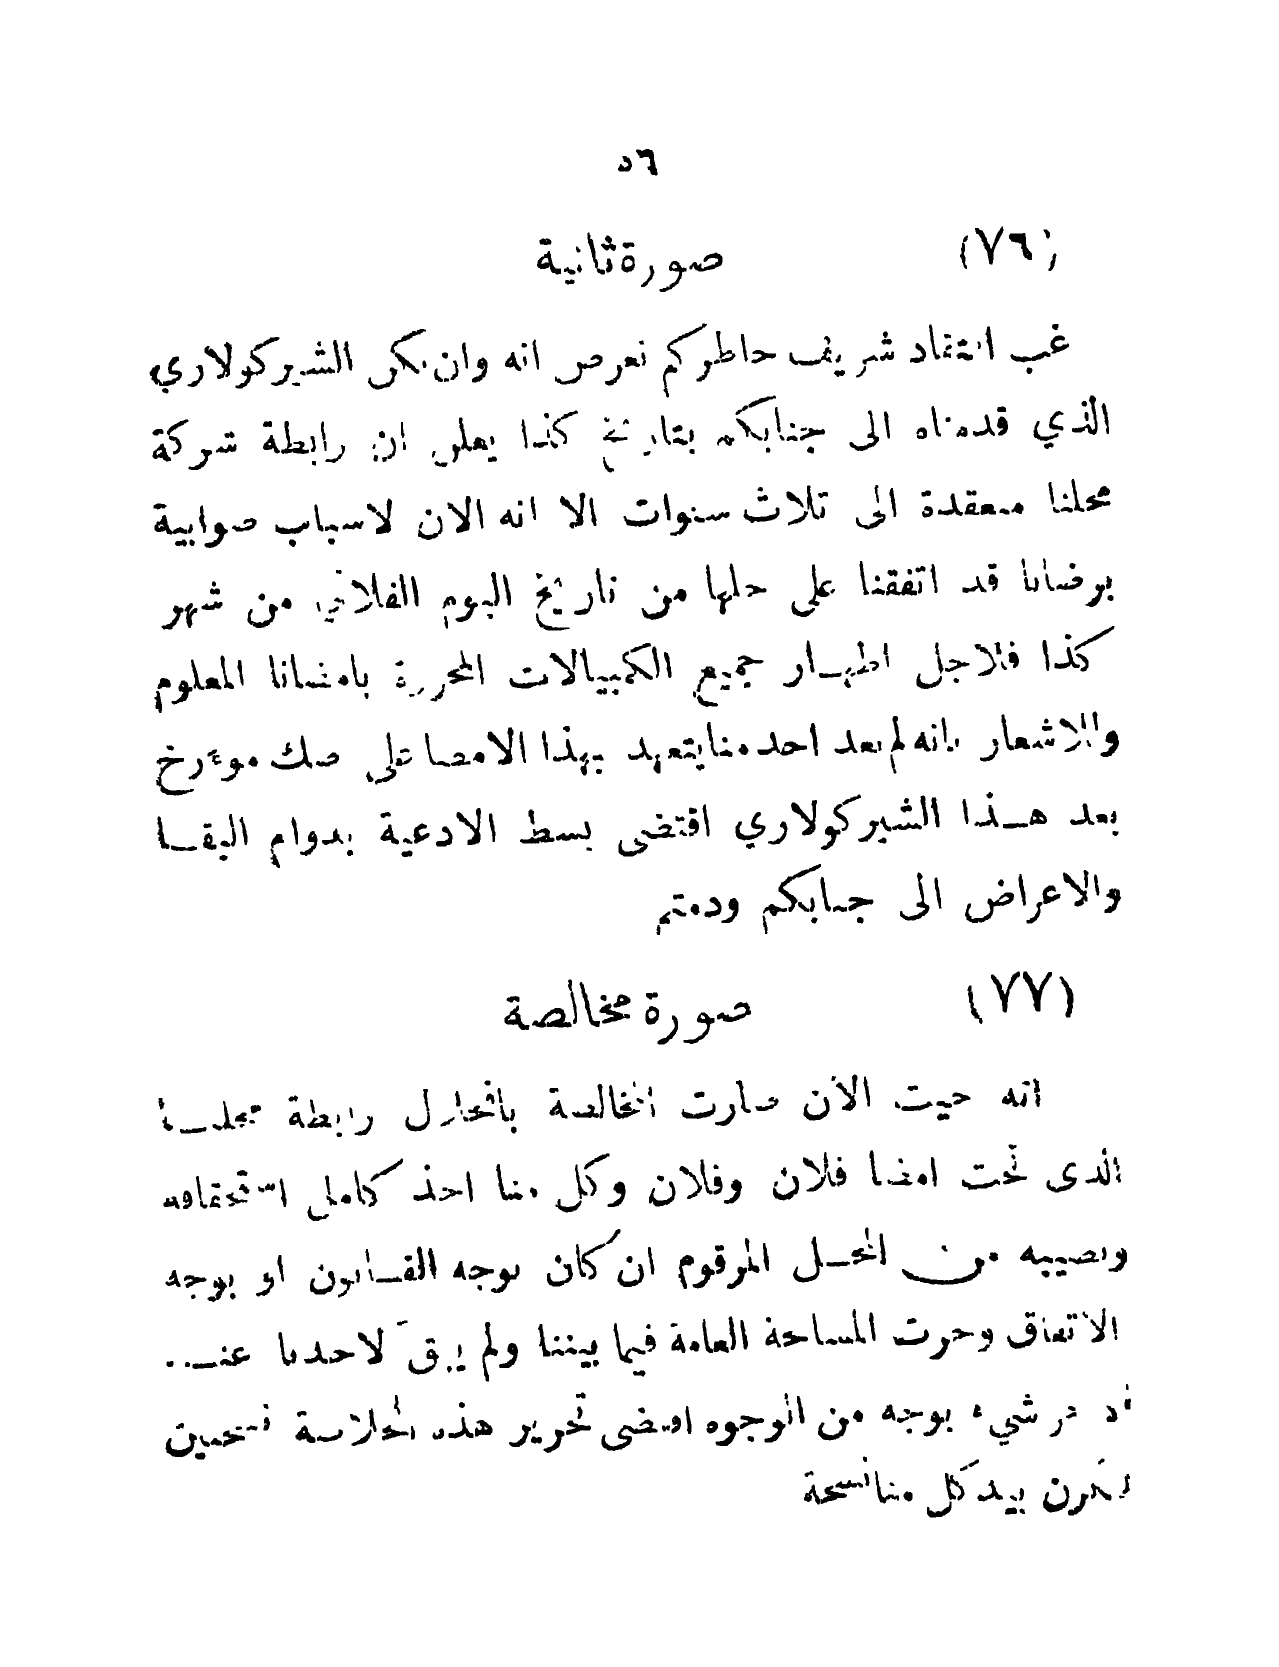 ٥٦
(٧٦) صورة ثانية
غب افتقاد شريف خاطركم نعرض انه وان يكن الشيركولاري
الذي قدمناه الى جنابكم بتاريخ كذا يعلن ان رابطة شركة
محلنا منعقدة الى ثلاث سنوات الا انه الان لاسباب صوابية
برضانا قد اتفقنا على حلها من تاريخ اليوم الفلاني من شهر
كذا فلاجل اظهار جميع الكمبيالات المحررة بامضانا المعلوم
والاشعار بانه لم يعد احد منا يتعهد بهذا الامضا على صك موءرخ
بعد هذا الشيركولاري اقتضى بسط الادعية بدوام البقا
والاعراض الى جنابكم ودمتم
(٧٧) صورة مخالصة
انه حيث الان صارت المخالصة بانحلال رابطة محلنا
الذي تحت امضا فلان وفلان وكل منا اخذ كامل استحقاقه
ونصيبه من المحل المرقوم ان كان بوجه القانون او بوجه
الاتفاق وجرت المسامحة العامة فيما بيننا ولم يبق لاحدنا عند
شيء بوجه من الوجوه اقتضى تحرير هذه نسختين
بيد كل منا نسخة